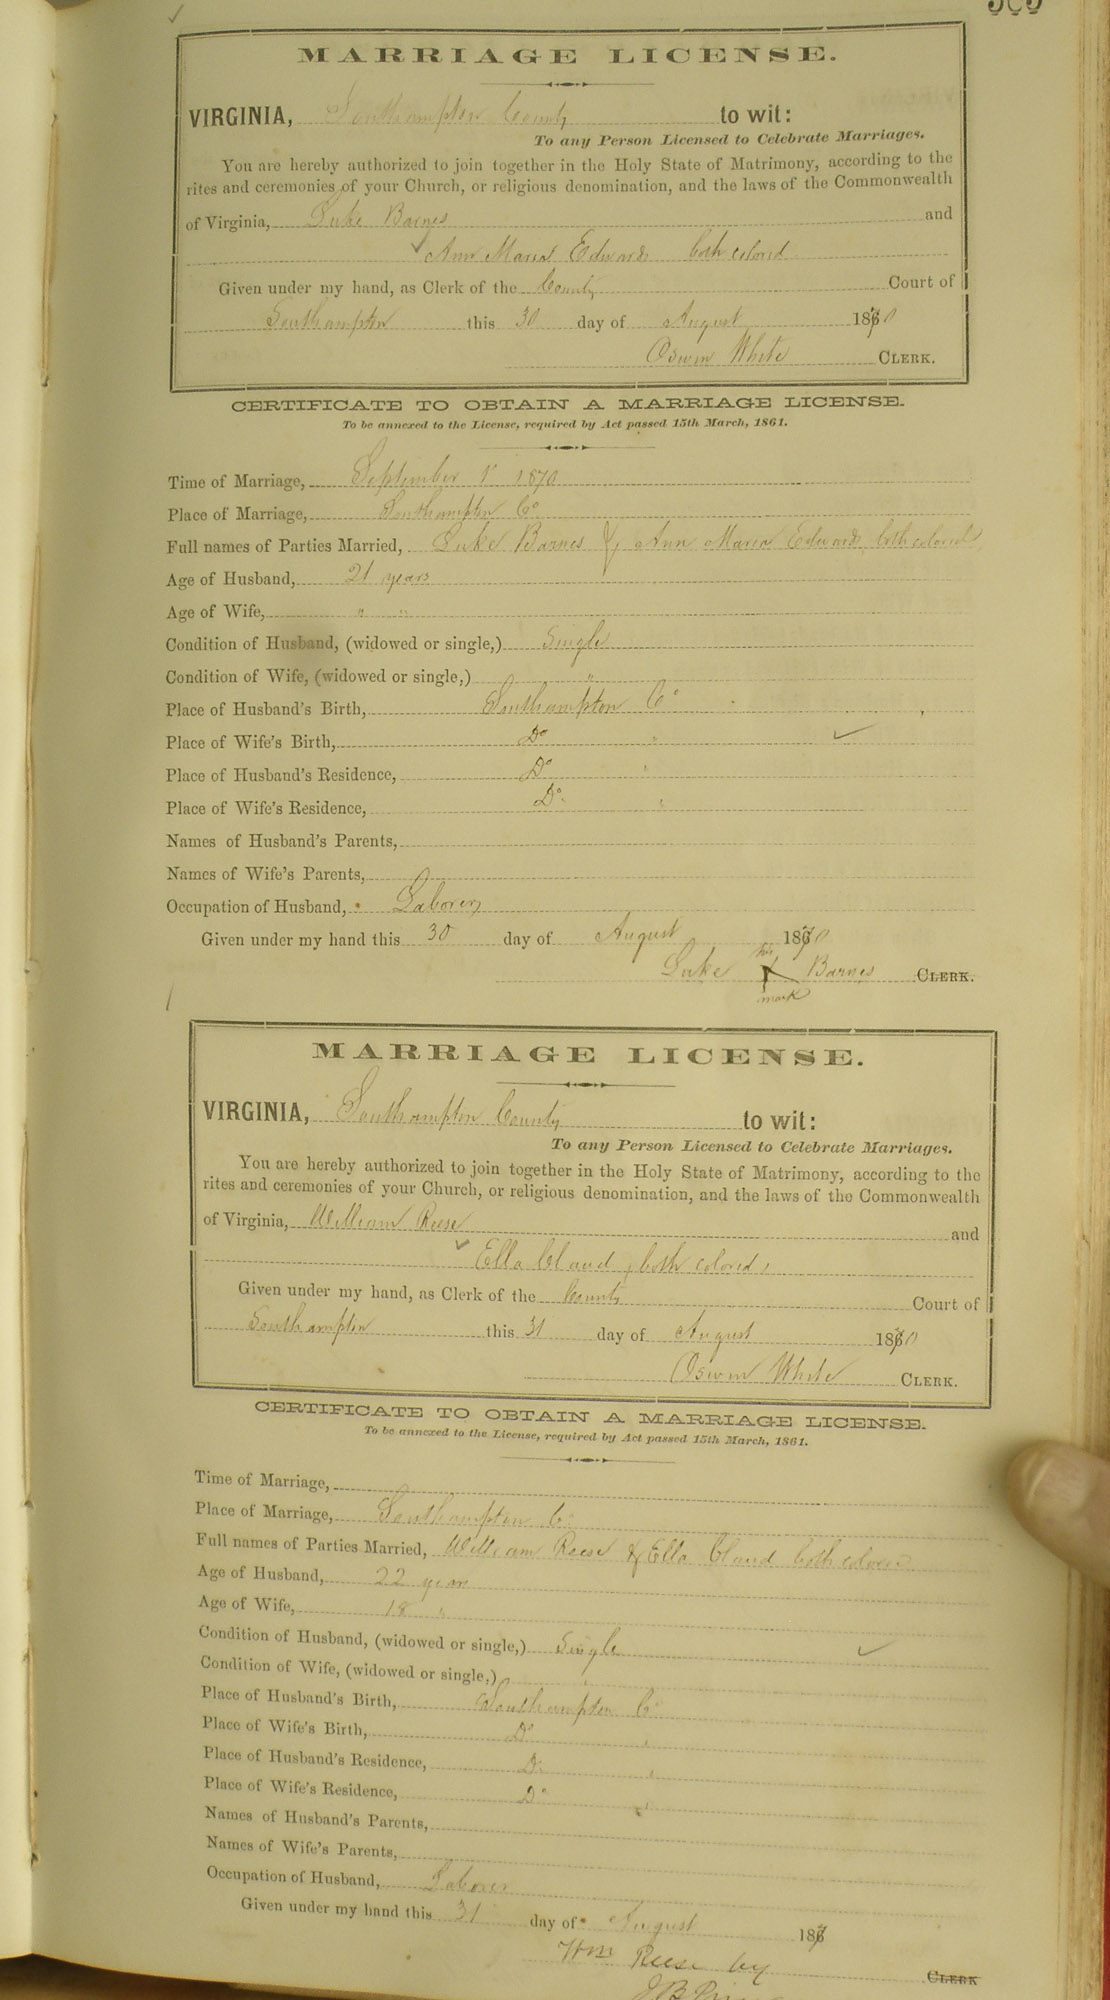 MARRIAGE LICENSE.
VIRGINIA, Southampton County to wit:
To any Person Licensed to Celebrate Marriages.
You are hereby authorized to join together in the Holy State of Matrimony, according to the
rites and ceremonies of your Church, or religious denomination, and the laws of the Commonwealth
of Virginia, Luke Barnes and
Ann Maria Edwards both colored
Given under my hand, as Clerk of the County Court of
Southampton this 30 day of August 1870
Oswin White CLERK.
CERTIFICATE TO OBTAIN A MARRIAGE LICENSE.
To be annexed to the License, required by Act passed 15th March, 1861.
Time of Marriage, September 1st 1870
Place of Marriage, Southampton Co
Full names of Parties Married, Luke Barnes & Ann Maria Edwards both colored
Age of Husband, 21 years
Age of Wife, " "
Condition of Husband, (widowed or single,) Single
Condition of Wife, (widowed or single,) "
Place of Husband's Birth, Southampton Co
Place of Wife's Birth, Do "
Place of Husband's Residence, Do "
Place of Wife's Residence, Do "
Names of Husband's Parents,
Names of Wife's Parents,
Occupation of Husband, Laborer
Given under my hand this 30 day of August 1870
his
Luke X Barnes CLERK.
mark
MARRIAGE LICENSE.
VIRGINIA, Southampton County to wit:
To any Person Licensed to Celebrate Marriages.
You are hereby authorized to join together in the Holy State of Matrimony, according to the
rites and ceremonies of your Church, or religious denomination, and the laws of the Commonwealth
of Virginia, William Reese and
Ella Claud, both colored,
Given under my hand, as Clerk of the County Court of
Southampton this 31 day of August 1870
Oswin White CLERK.
CERTIFICATE TO OBTAIN A MARRIAGE LICENSE.
To be annexed to the License, required by Act passed 15th March, 1861.
Time of Marriage,
Place of Marriage, Southampton Co
Full names of Parties Married, William Reese & Ella Claud both colored
Age of Husband, 22 years
Age of Wife, 18 "
Condition of Husband, (widowed or single,) Single
Condition of Wife, (widowed or single,) "
Place of Husband's Birth, Southampton Co
Place of Wife's Birth, Do "
Place of Husband's Residence, Do "
Place of Wife's Residence, Do "
Names of Husband's Parents,
Names of Wife's Parents,
Occupation of Husband, Laborer
Given under my hand this 31 day of August 187
Wm Reese by CLERK
J. B.